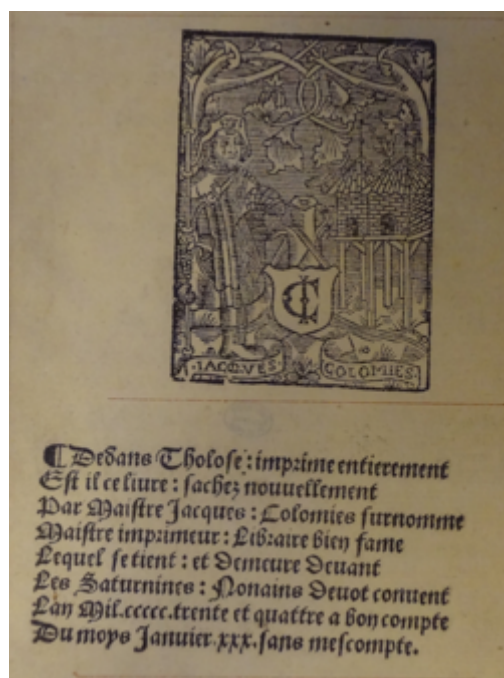 IC
.IACQVES COLOMIES.
¶ Dedans Tholose : imprime entierement
Est il ce liure : sachez nouuellement
Par Maistre Jacques : Colomies surnomme
Maistre imprimeur : Libraire bien fame
Lequel se tient : et demeure deuant
Les Saturnines : Nonains deuot conuent
Lan Mil.ccccc.trente et quattre a bon compte
Du moys Januier.xxx.sans mescompte.